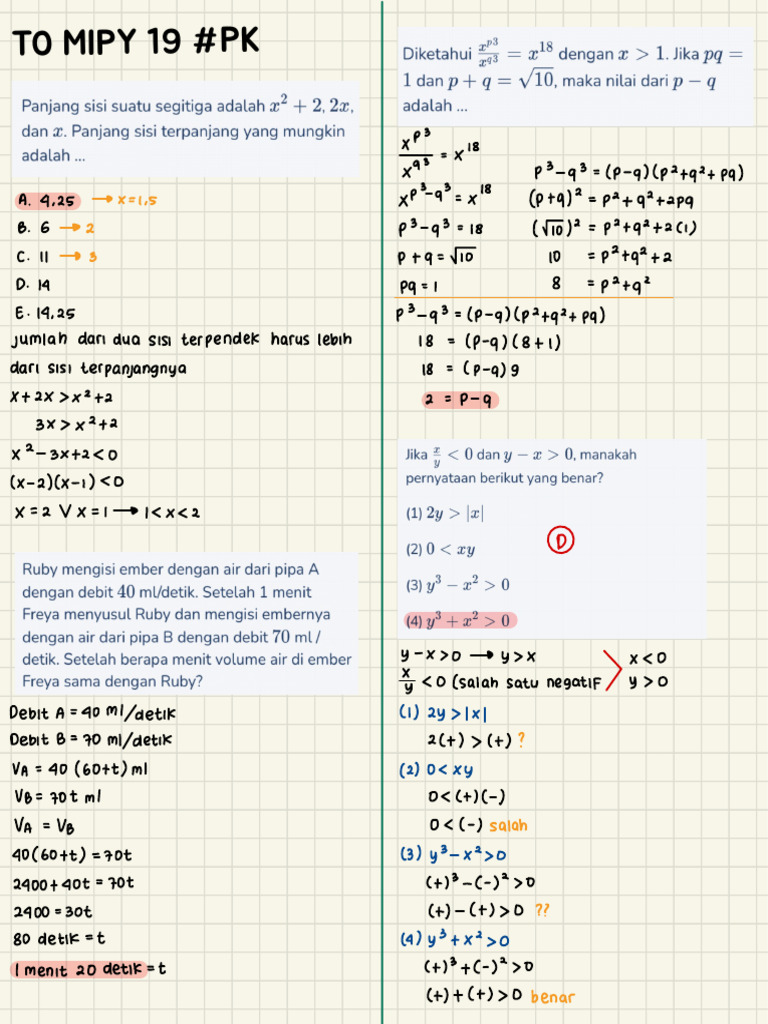 TO MIPY 19 #PK
Panjang sisi suatu segitiga adalah x² + 2, 2x,
dan x. Panjang sisi terpanjang yang mungkin
adalah ...
A. 4,25 → x=1,5
B. 6 → 2
C. 11 → 3
D. 14
E. 14,25
jumlah dari dua sisi terpendek harus lebih
dari sisi terpanjangnya
x+2x > x²+2
3x > x²+2
x²-3x+2<0
(x-2)(x-1)<0
x=2 V x=1 → 1<x<2
Ruby mengisi ember dengan air dari pipa A
dengan debit 40 ml/detik. Setelah 1 menit
Freya menyusul Ruby dan mengisi embernya
dengan air dari pipa B dengan debit 70 ml /
detik. Setelah berapa menit volume air di ember
Freya sama dengan Ruby?
Debit A = 40 ml/detik
Debit B = 70 ml/detik
VA = 40 (60+t) ml
VB = 70t ml
VA = VB
40(60+t) = 70t
2400+40t = 70t
2400 = 30t
80 detik = t
1 menit 20 detik = t
Diketahui x^p³/x^q³ = x¹⁸ dengan x > 1. Jika pq =
1 dan p + q = √10, maka nilai dari p − q
adalah ...
x^p³/x^q³ = x¹⁸
x^p³-q³ = x¹⁸
p³-q³ = 18
p+q = √10
pq = 1
p³-q³ = (p-q)(p²+q²+pq)
(p+q)² = p²+q²+2pq
(√10)² = p²+q²+2(1)
10 = p²+q²+2
8 = p²+q²
p³-q³ = (p-q)(p²+q²+pq)
18 = (p-q)(8+1)
18 = (p-q)9
2 = p-q
Jika x/y < 0 dan y − x > 0, manakah
pernyataan berikut yang benar?
(1) 2y > |x|
(2) 0 < xy
D
(3) y³ − x² > 0
(4) y³ + x² > 0
y-x>0 → y>x
x/y <0 (salah satu negatif
x<0
y>0
(1) 2y>|x|
2(+) > (+) ?
(2) 0<xy
0<(+)(-)
0<(-) salah
(3) y³-x²>0
(+)³-(-)²>0
(+)-(+)>0 ??
(4) y³+x²>0
(+)³+(-)²>0
(+)+(+)>0 benar